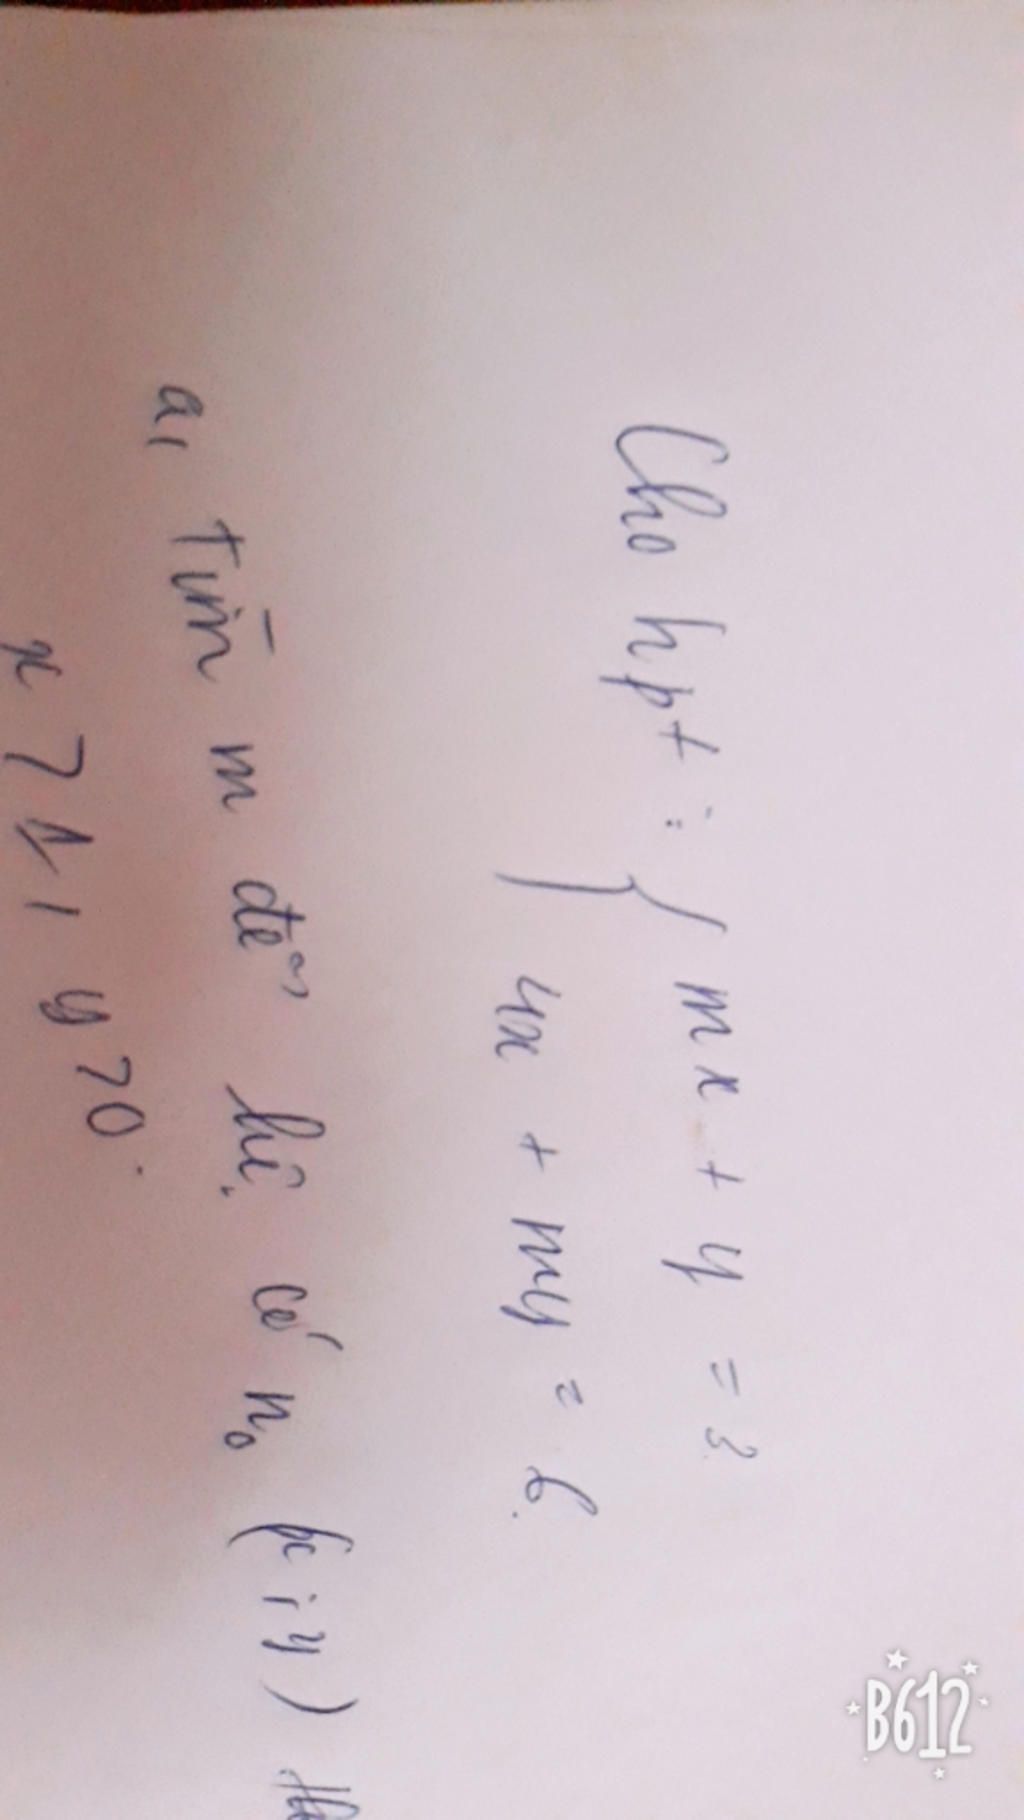 Cho hpt : { mx + y = 3
4x + my = 6.
a, Tìm m để hệ có n₀ (x ; y)
x > 1, y > 0.
B612